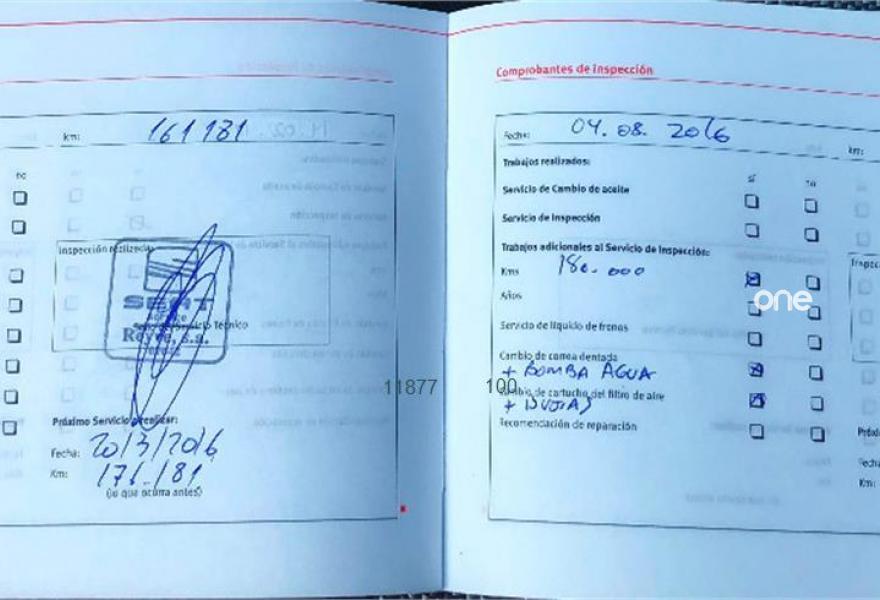 km: 161181
no
Inspección realizada:
SEAT
Servicio Técnico
Reyes, s.a.
Próximo Servicio a realizar:
Fecha: 20/3/2016
Km: 176.181
(lo que ocurra antes)
11877
Comprobantes de Inspección
Fecha: 04.08.2016
km:
Trabajos realizados:
sí no
Servicio de Cambio de aceite
Servicio de Inspección
Trabajos adicionales al Servicio de Inspección:
Kms 180.000
Años
one
Servicio de líquido de frenos
Cambio de correa dentada
+ BOMBA AGUA
100
Cambio de cartucho del filtro de aire
+ BUJIAS
Recomendación de reparación
Fecha
Km: